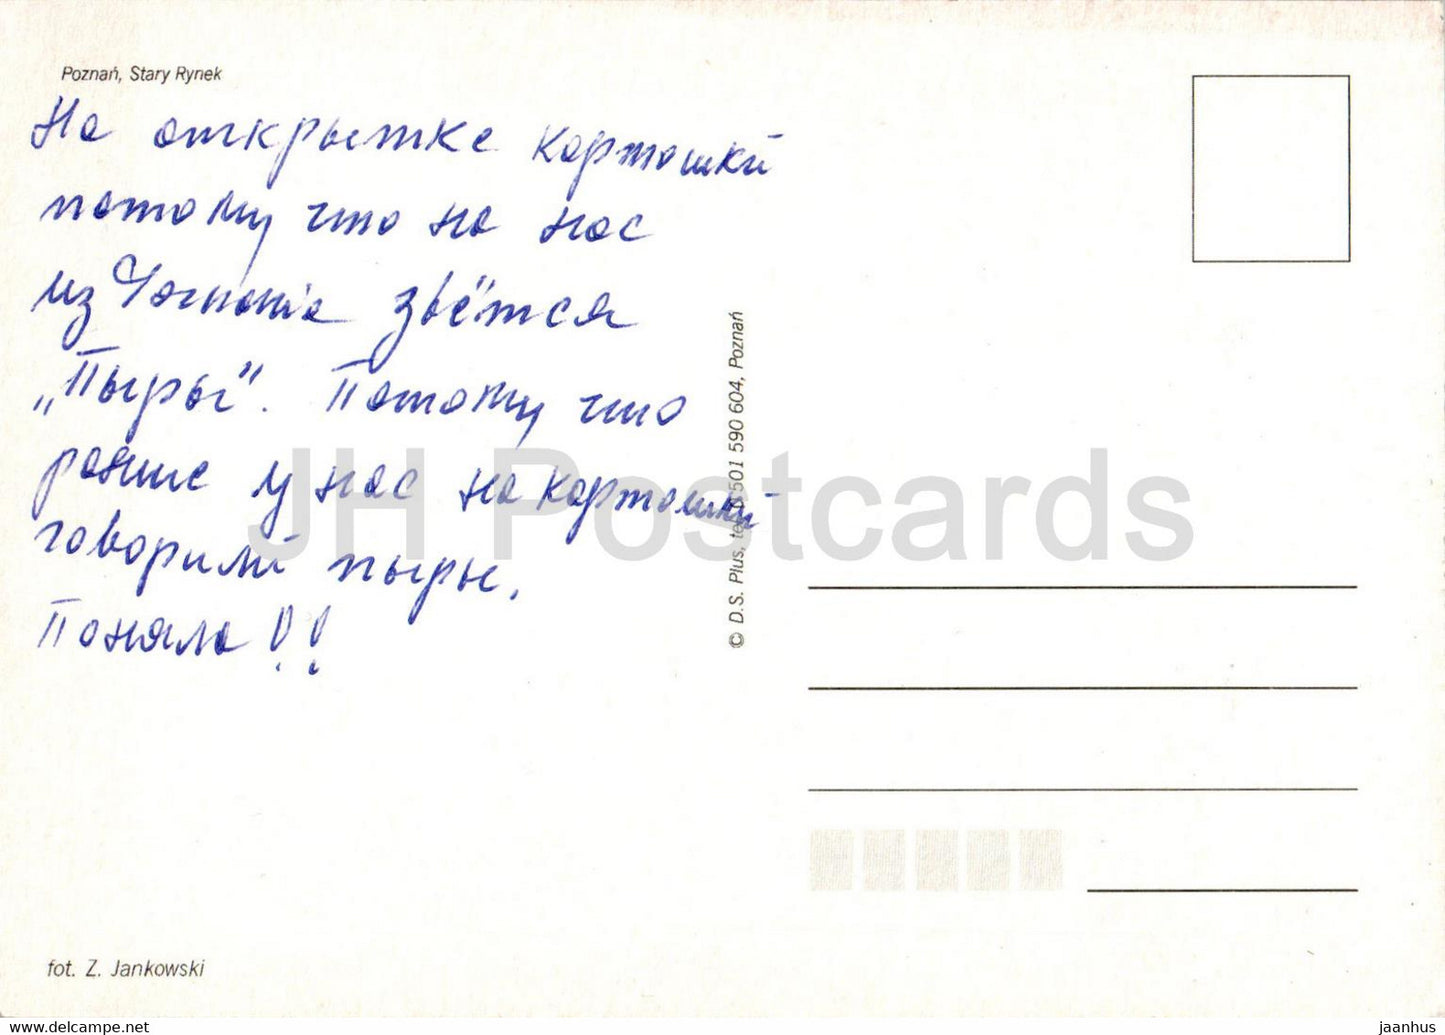 Poznań, Stary Rynek
На открытке картошки
потому что на нас
из Познаніа звётся
„Пыры". Потому что
ранше у нас на картошки
говорилі пыры.
Поняла!!
© D.S. Plus, tel. 0501 590 604, Poznań
JH Postcards
fot. Z. Jankowski
www.delcampe.net
jaanhus